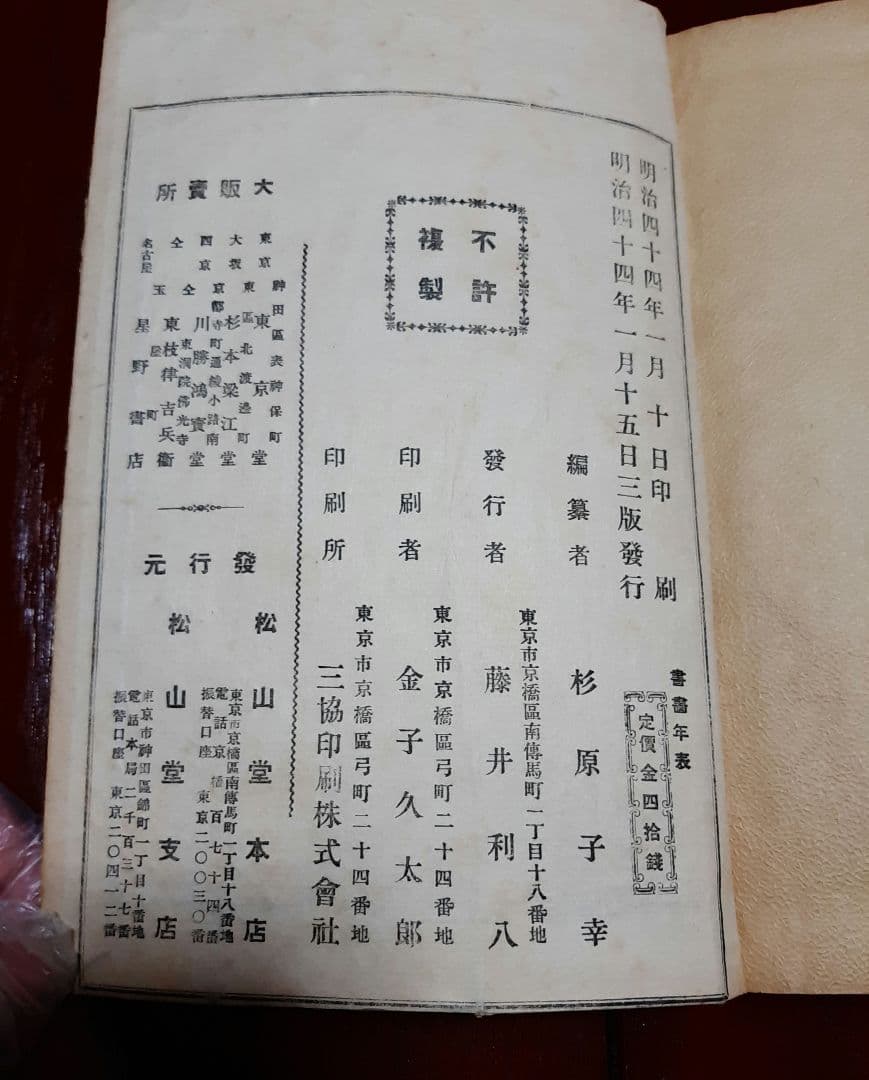 明治四十四年一月十日印刷
明治四十四年一月十五日三版發行
書畵年表
定價金四拾錢
不許
複製
編纂者 杉原子幸
東京市京橋區南傳馬町一丁目十八番地
發行者 藤井利八
東京市京橋區弓町二十四番地
印刷者 金子久太郎
東京市京橋區弓町二十四番地
印刷所 三協印刷株式會社
大販賣所
東京 神田區表神保町
東京堂
大坂 東區北渡邊町
杉本梁江堂
西京 京都寺町通綾小路南
川勝鴻寳堂
仝 仝 東洞院佛光寺
東枝律吉兵衞
名古屋 玉屋町
星野書店
發行元
松山堂本店
東京市京橋區南傳馬町一丁目十八番地
電話京橋百七十四番
振替口座東京二〇〇三〇番
松山堂支店
東京市神田區錦町一丁目十番地
電話本局二千百三十七番
振替口座東京二〇四一二番